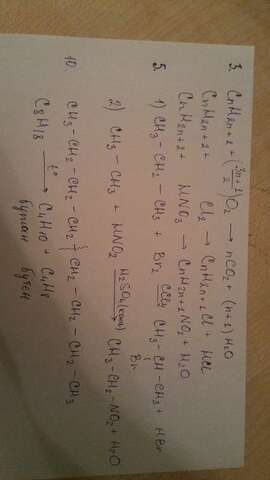 3. CnH2n+2 + (3n+1/2)O2 → nCO2 + (n+1)H2O
CnH2n+2 + Cl2 → CnH2n+1Cl + HCl
CnH2n+2 + HNO3 → CnH2n+1NO2 + H2O
5. 1) CH3-CH2-CH3 + Br2 CCl4 CH3-CH-CH3 + HBr
Br
2) CH3-CH3 + HNO2 H2SO4(конц) → CH3-CH2-NO2 + H2O
10. CH3-CH2-CH2-CH2 CH2-CH2-CH2-CH3
C8H18 t° → C4H10 + C4H8
бутан бутен